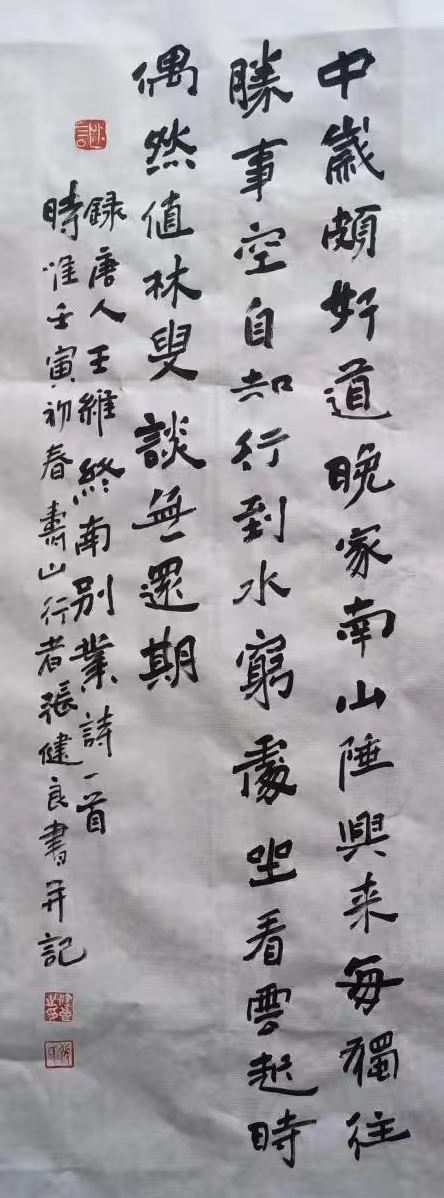 中歲頗好道晚家南山陲興来每獨往
勝事空自知行到水窮處坐看雲起時
偶然值林叟談無還期
録唐人王維終南别業詩一首
時惟壬寅初春壽山行者張健良書并記